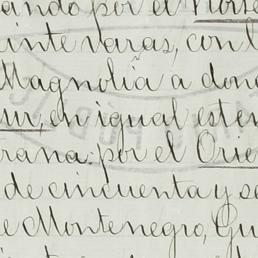 ando por el Norte
einte varas, con l
Magnolia a don
ur, en igual exten
rana: por el Orie
de cincuenta y se
e Montenegro, Gu